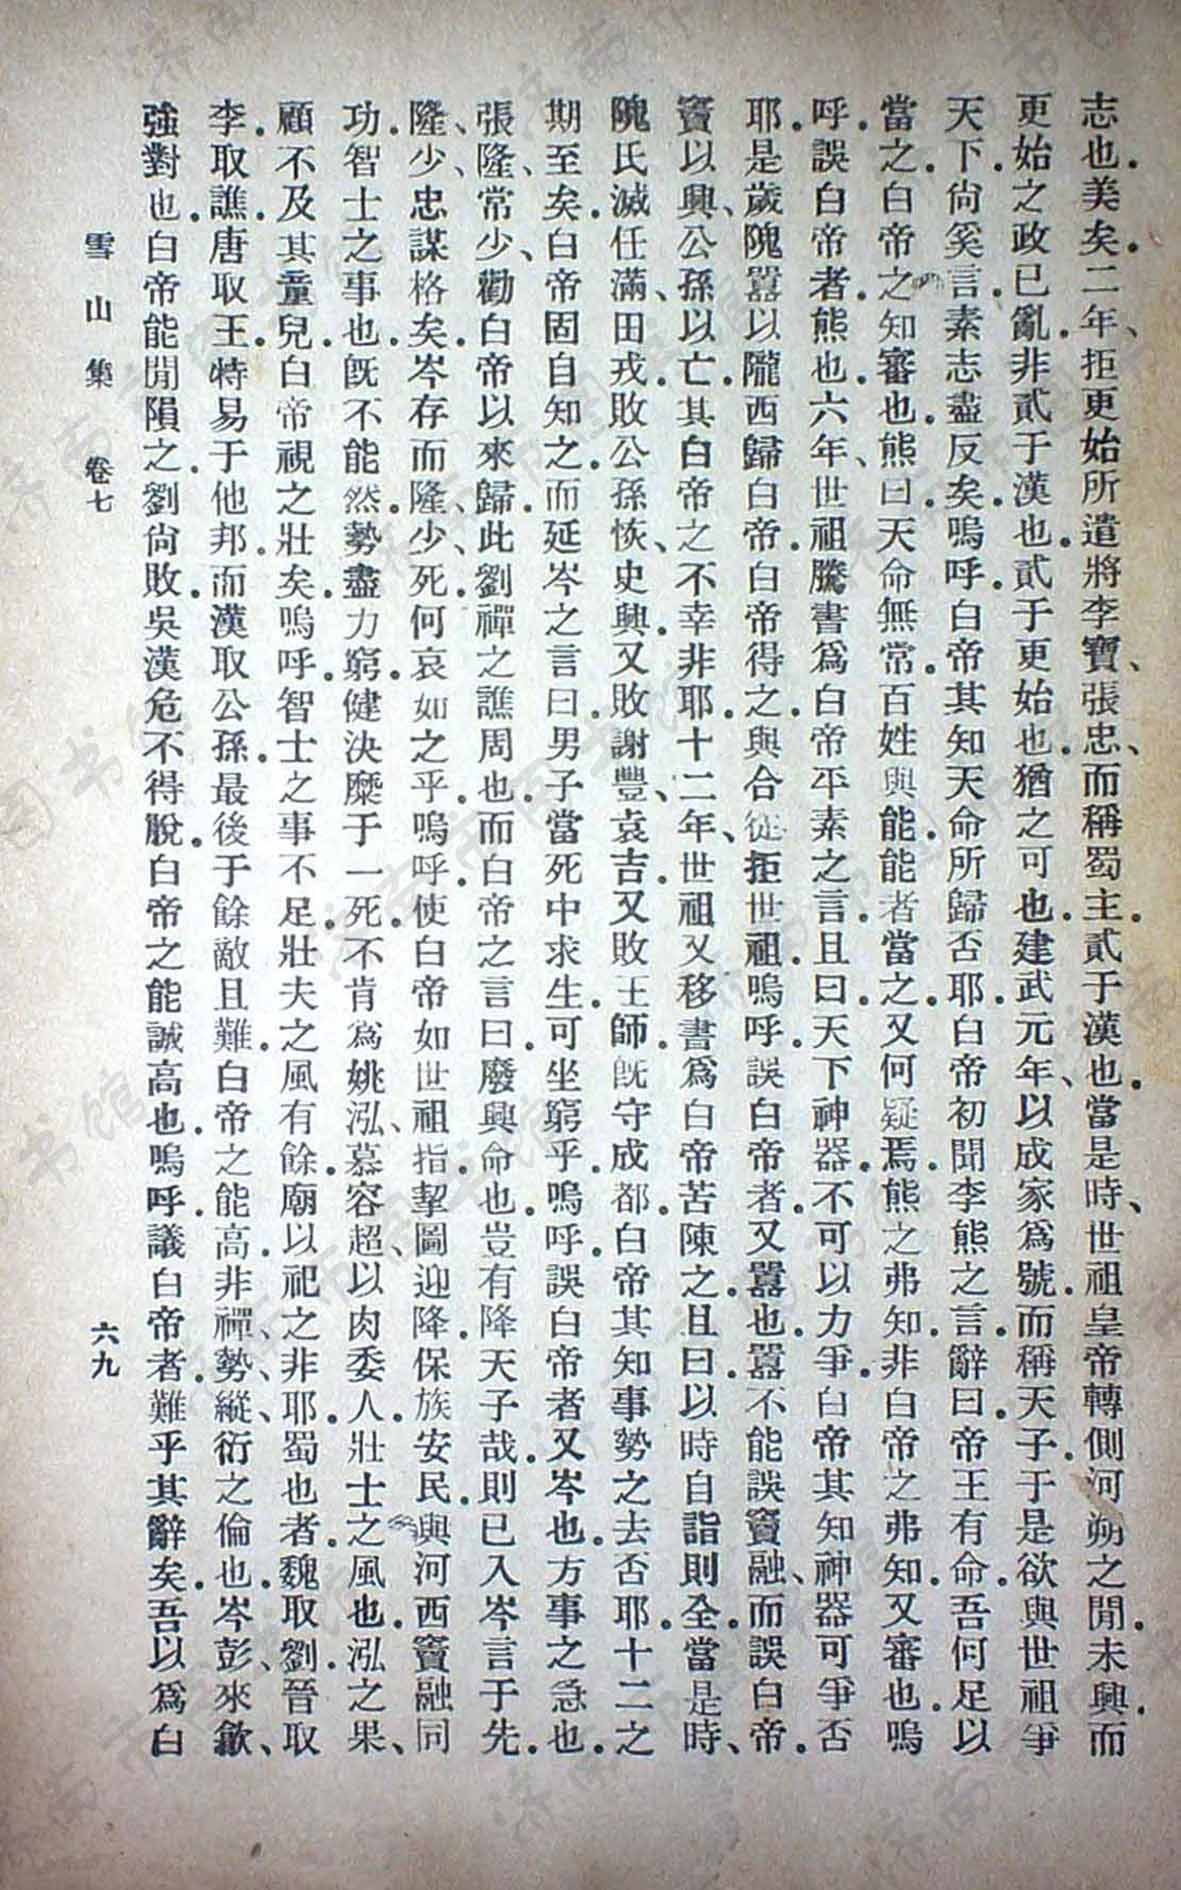 志也美矣二年、拒更始所遣將李寶、張忠、而稱蜀主。貳于漢也。當是時、世祖皇帝轉側河朔之閒。未興。而
更始之政已亂。非貳于漢也。貳于更始也。猶之可也。建武元年、以成家爲號。而稱天子。于是欲與世祖爭
天下。尙奚言。素志盡反矣。嗚呼。白帝其知天命所歸否耶。白帝初聞李熊之言。辭曰。帝王有命。吾何足以
當之。白帝之知審也。熊曰。天命無常。百姓與能。能者當之。又何疑焉。熊之弗知。非白帝之弗知。又審也。嗚
呼。誤白帝者。熊也。六年、世祖騰書爲白帝平素之言。且曰。天下神器。不可以力爭。白帝其知神器可爭否
耶。是歲隗囂以隴西歸白帝。白帝得之。與合從拒世祖。嗚呼。誤白帝者。又囂也。囂不能誤竇融、而誤白帝。
竇以興、公孫以亡。其白帝之不幸非耶。十二年、世祖又移書爲白帝苦陳之。且曰。以時自詣則全。當是時、
隗氏滅。任滿、田戎敗。公孫恢、史興。又敗。謝豐、袁吉。又敗。王師。旣守成都。白帝其知事勢之去否耶。十二之
期至矣。白帝固自知之。而延岑之言曰。男子當死中求生。可坐窮乎。嗚呼。誤白帝者。又岑也。方事之急也。
張隆、常少、勸白帝以來歸。此劉禪之譙周也。而白帝之言曰。廢興命也。豈有降天子哉。則已入岑言于先。
隆、少、忠謀格矣。岑存而隆、少、死。何哀如之乎。嗚呼。使白帝如世祖指。挈圖迎降。保族安民。與河西竇融同
功。智士之事也。旣不能然。勢盡力窮。健決糜于一死。不肯爲姚泓、慕容超、以肉委人。壯士之風也。泓之果、
顧不及其童兒。白帝視之壯矣。嗚呼。智士之事不足。壯夫之風有餘。廟以祀之非耶。蜀也者。魏取劉。晉取
李。取譙。唐取王。特易于他邦。而漢取公孫。最後于餘敵且難。白帝之能高。非禪、勢、縱、衍之倫也。岑彭、來歙、
強對也。白帝能閒隕之。劉尙敗。吳漢危不得脫。白帝之能誠高也。嗚呼。議白帝者。難乎其辭矣。吾以爲白
雪山集 卷七 六九